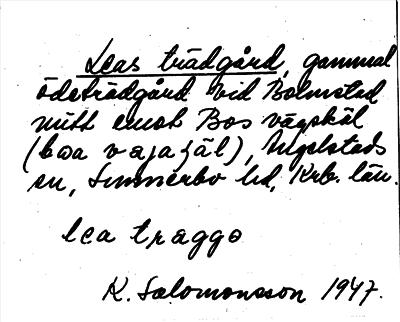 Leas trädgård, gammal
ödeträdgård vid Bolmstad
mitt emot Bos vägskäl
(bωa vajaʃäl), Angelstads
sn, Sunnerbo hd, Krb. län.
lea traggo
K. Salomonsson 1947.